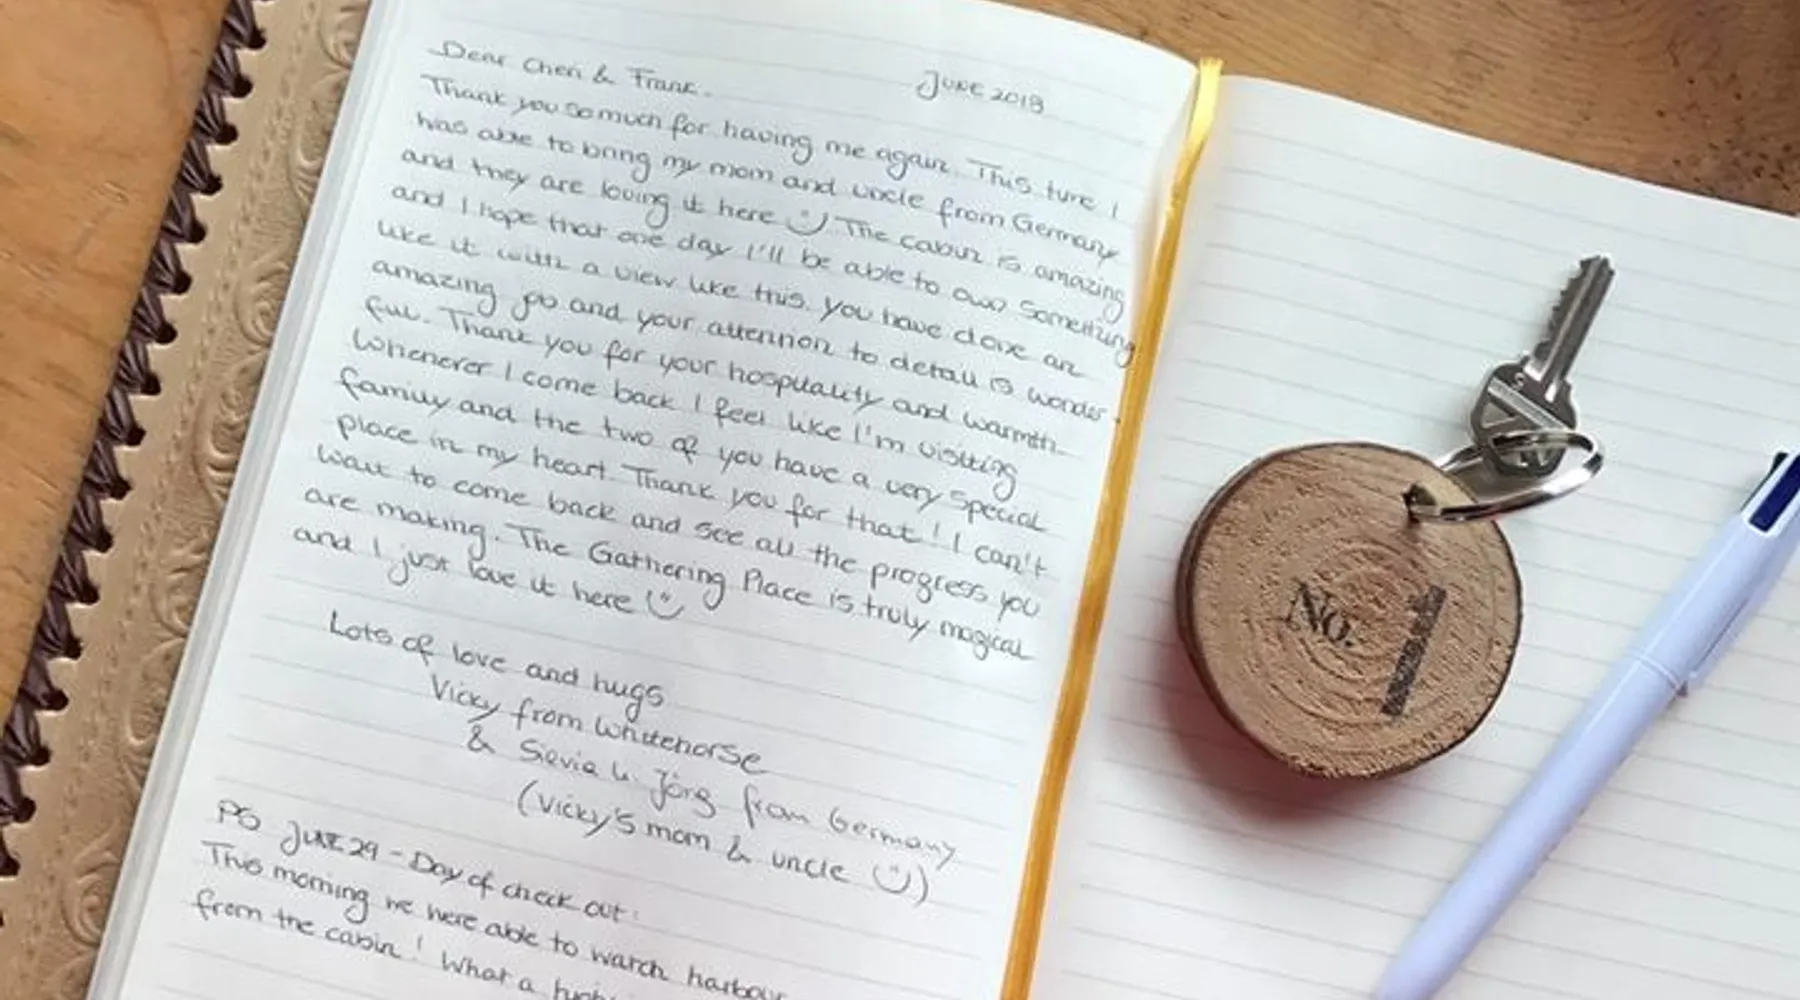 Dear Cheri & Frank. JUNE 2018
Thank you so much for having me again. This time I
was able to bring my mom and uncle from Germany
and they are loving it here :) The cabin is amazing
and I hope that one day I'll be able to own something
like it with a view like this. You have done an
amazing job and your attention to detail is wonder-
ful. Thank you for your hospitality and warmth.
Whenever I come back I feel like I'm visiting
family and the two of you have a very special
place in my heart. Thank you for that! I can't
wait to come back and see all the progress you
are making. The Gathering Place is truly magical
and I just love it here :)
Lots of love and hugs
Vicky from Whitehorse
& Silvia u. Jörg from Germany
(Vicky's mom & uncle :))
PS JUNE 29 - Day of check out:
This morning we were able to watch harbour
from the cabin! What a
No. 1